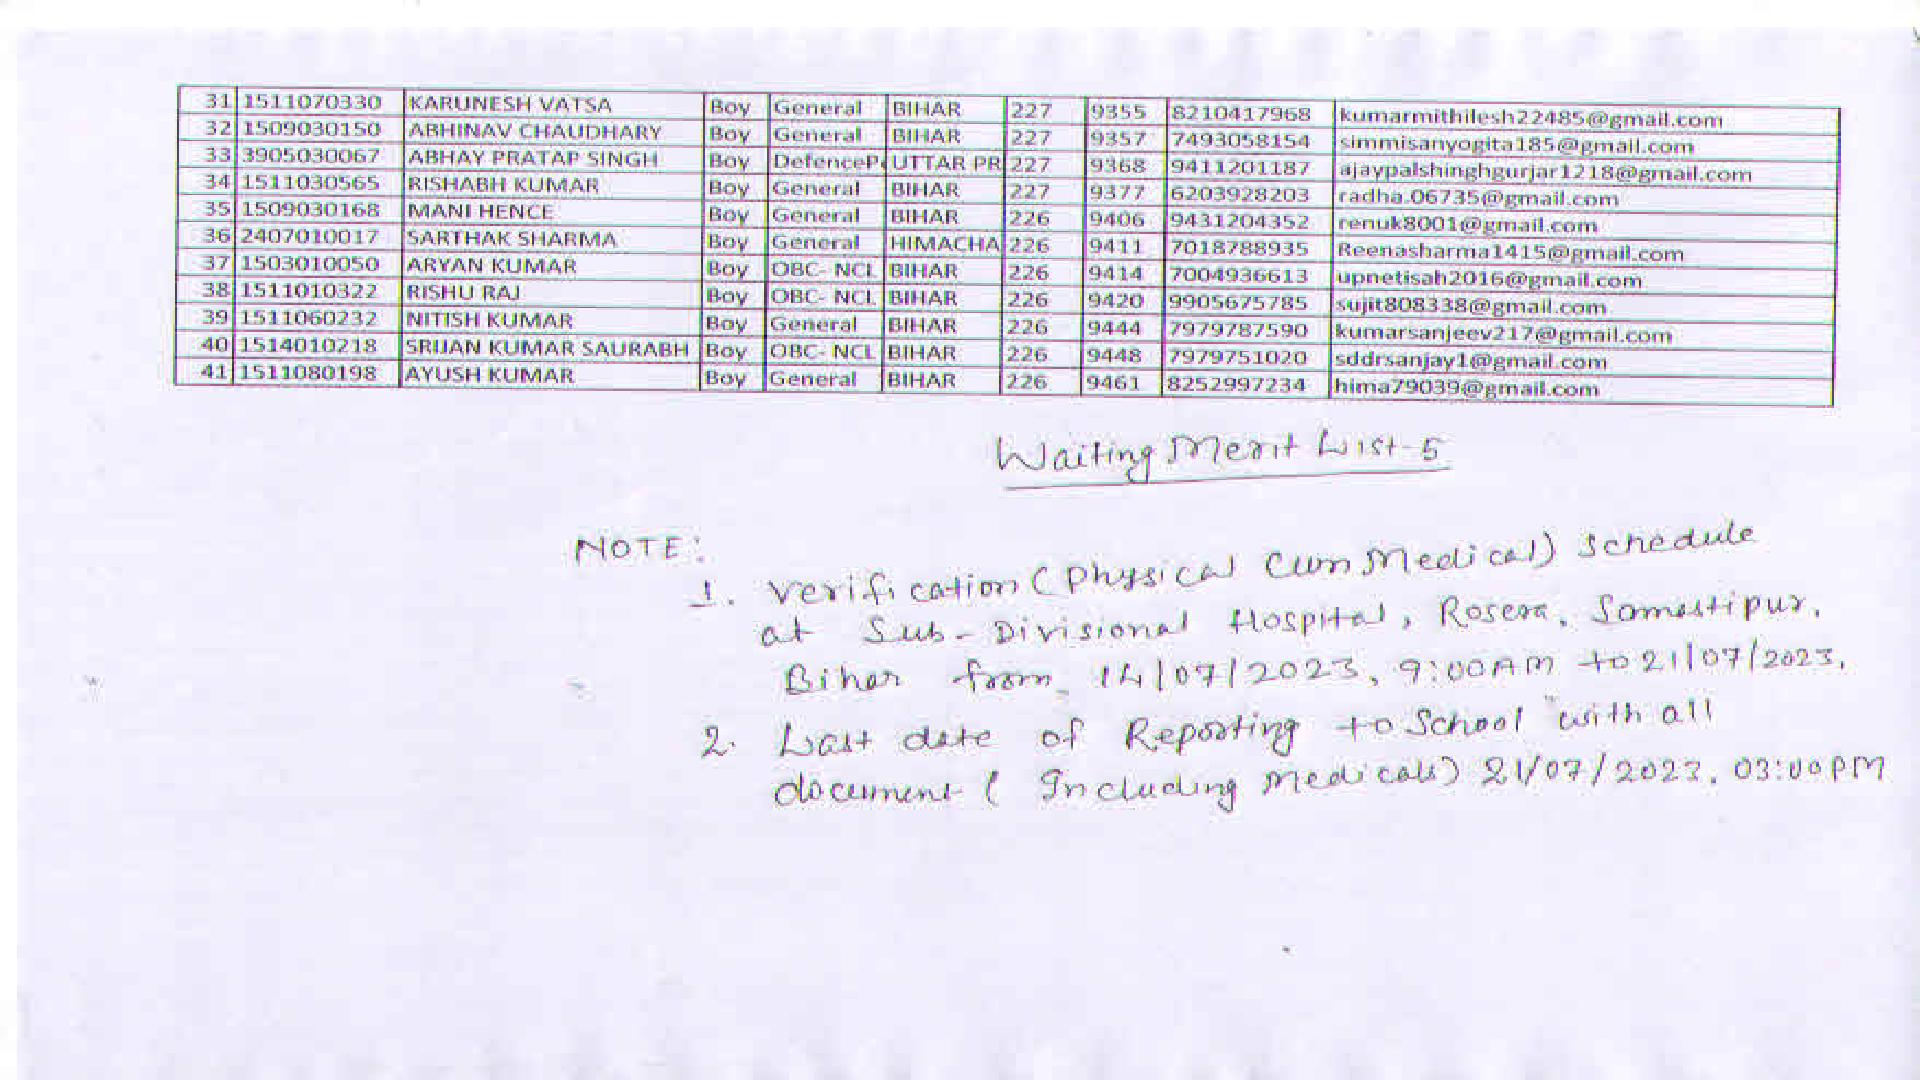 31 1511070330 KARUNESH VATSA Boy General BIHAR 227 9355 8210417968 kumarmithilesh22485@gmail.com
32 1509030150 ABHINAV CHAUDHARY Boy General BIHAR 227 9357 7493058154 simmisanyogita185@gmail.com
33 3905030067 ABHAY PRATAP SINGH Boy DefenceP UTTAR PR 227 9368 9411201187 ajaypalshinghgurjar1218@gmail.com
34 1511030565 RISHABH KUMAR Boy General BIHAR 227 9377 6203928203 radha.06735@gmail.com
35 1509030168 MANI HENCE Boy General BIHAR 226 9406 9431204352 renuk8001@gmail.com
36 2407010017 SARTHAK SHARMA Boy General HIMACHA 226 9411 7018788935 Reenasharma1415@gmail.com
37 1503010050 ARYAN KUMAR Boy OBC- NCL BIHAR 226 9414 7004936613 upnetisah2016@gmail.com
38 1511010322 RISHU RAJ Boy OBC- NCL BIHAR 226 9420 9905675785 sujit808338@gmail.com
39 1511060232 NITISH KUMAR Boy General BIHAR 226 9444 7979787590 kumarsanjeev217@gmail.com
40 1514010218 SRIJAN KUMAR SAURABH Boy OBC- NCL BIHAR 226 9448 7979751020 sddrsanjay1@gmail.com
41 1511080198 AYUSH KUMAR Boy General BIHAR 226 9461 8252997234 hima79039@gmail.com
Waiting Merit List-5
NOTE:
1. Verification (Physical Cum Medical) Schedule
at Sub-Divisional Hospital, Rosera, Samastipur,
Bihar from 14/07/2023, 9:00AM to 21/07/2023.
2. Last date of Reporting to School with all
document ( Including Medicals) 21/07/2023, 03:00PM